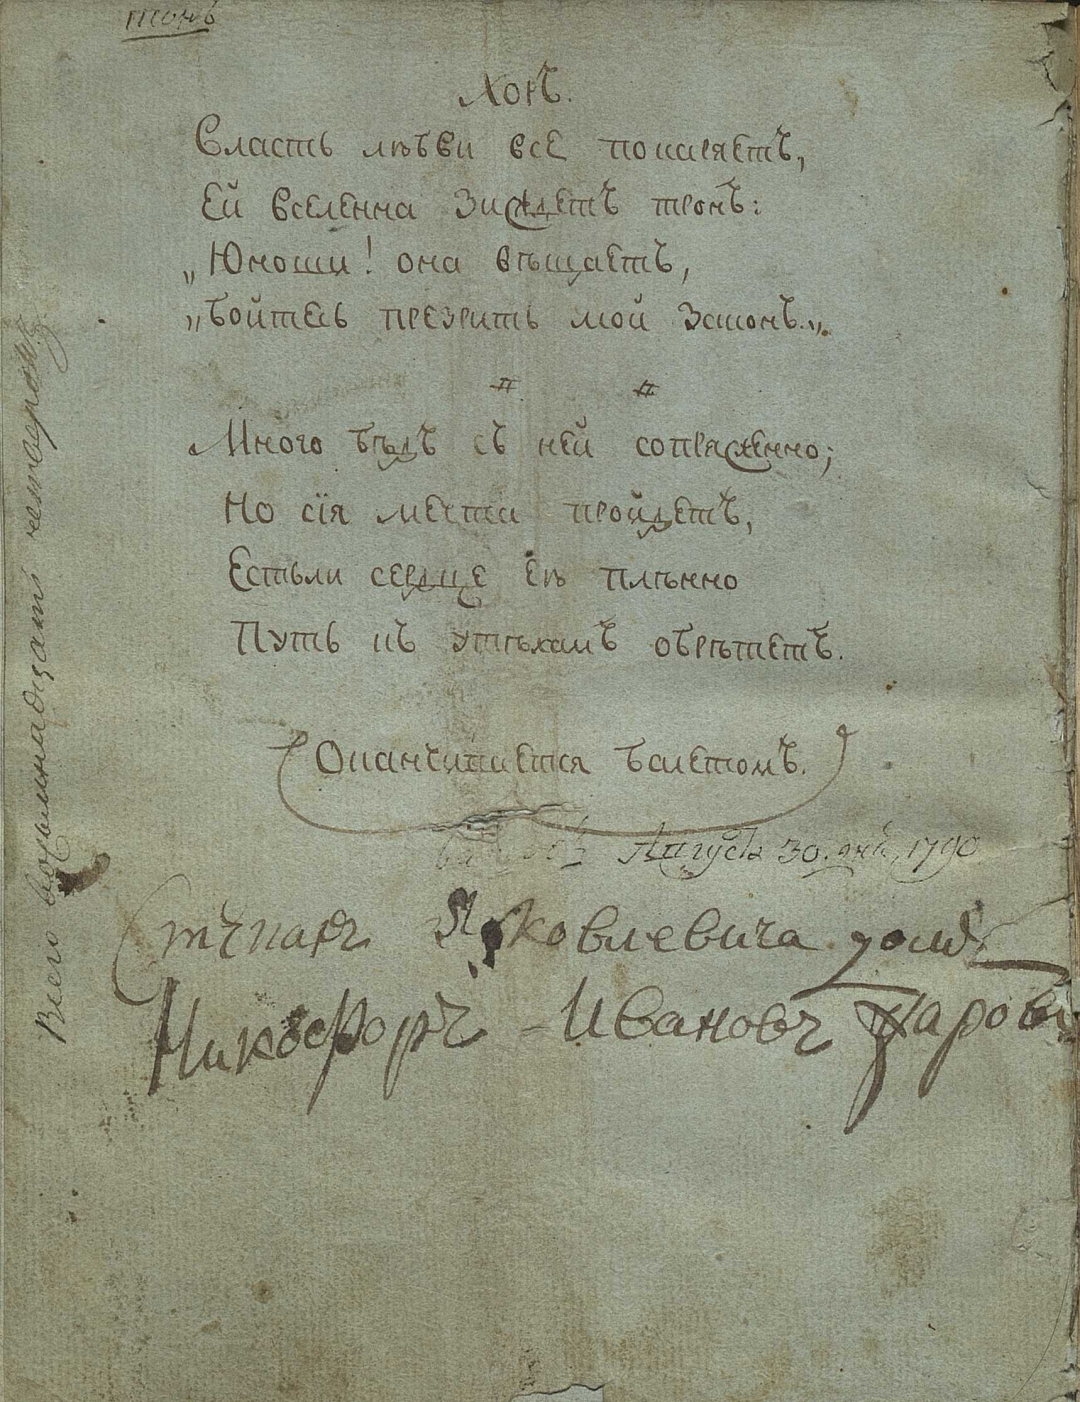 тонъ
Хоръ.
Власть любви все покаряетъ,
Ей вселенна зиждетъ тронъ:
„Юноши! она вѣщаетъ,
„Бойтесь презрить мой законъ.„
# #
Много бѣдъ съ ней сопряженно;
Но сїя мечта пройдетъ,
Естьли сердце ею плѣнно
Путь къ утѣхамъ обрѣтетъ.
Оканчивается балетомъ.
Августа 30. дня, 1790
Яковлевича
Никифоръ Ивановъ
Всего восьмнадцать